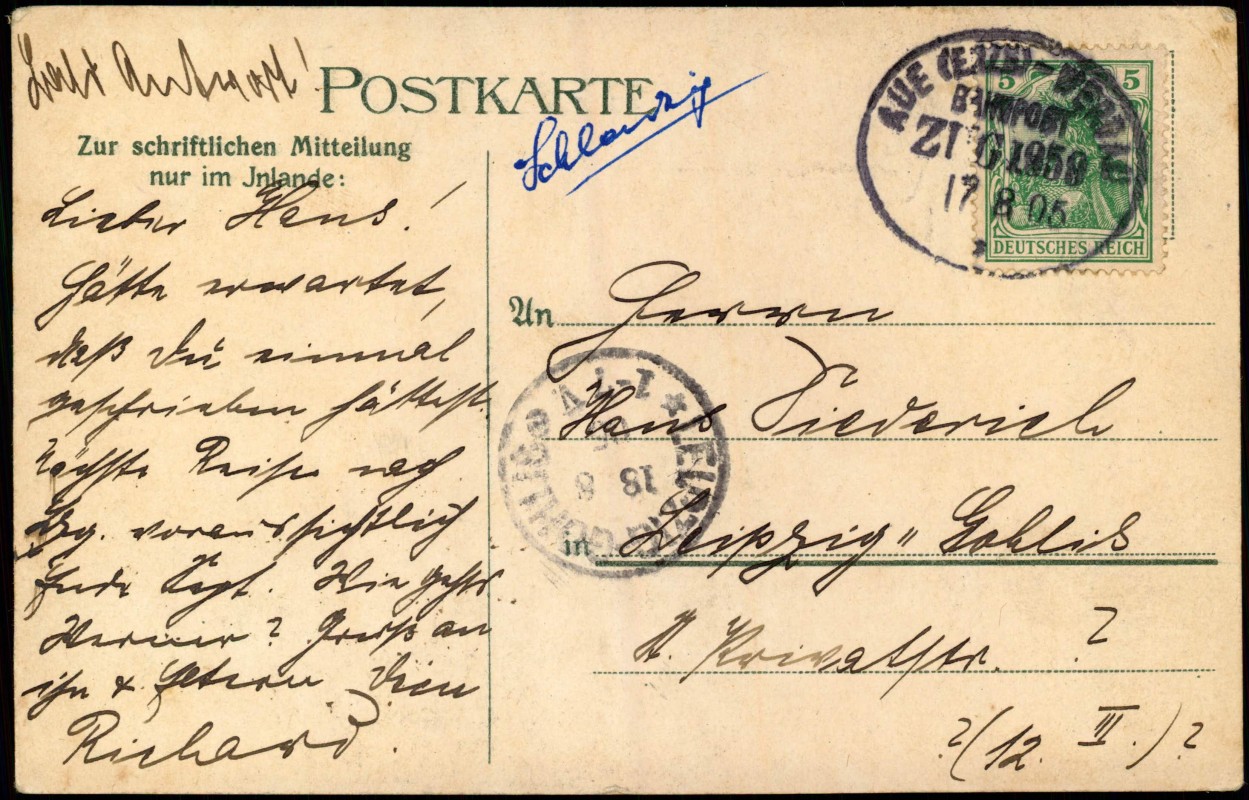 Antwort!
POSTKARTE
Zur schriftlichen Mitteilung
nur im Jnlande:
Lieber Hans!
Hätte erwartet,
daß Du einmal
geschrieben hättest.
Nächste Reise nach
Lpzg. voraussichtlich
Ende Sept. Wie gehts
Werner? Gruß an
ihn & Eltern Dein
Richard.
AUE (ERZG)
BAHNPOST
ZUG 1958
17 8 05
5 5
DEUTSCHES REICH
An Herrn
Hans Diederich
in Leipzig " Gohlis
Privatstr. ?
? (12. III.) ?
LEIPZIG-GOHLIS
18 8
05